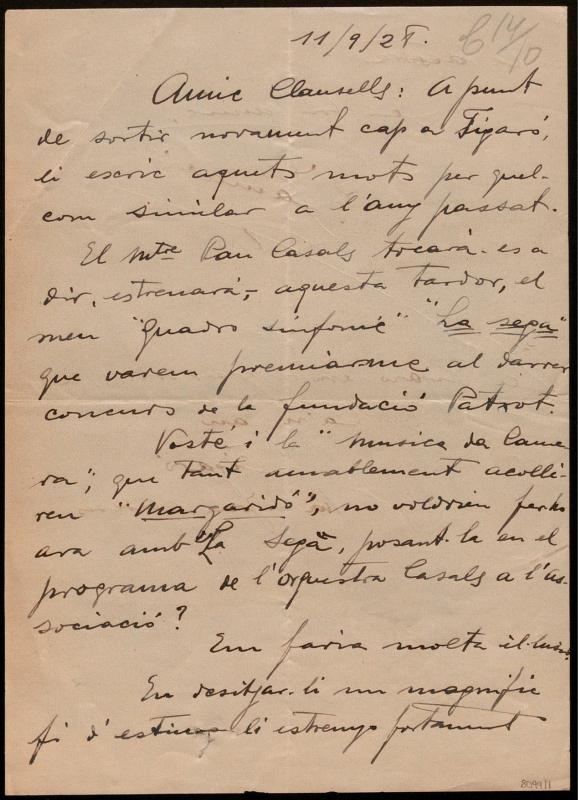 11/9/28. C 14/10
Amic Clausells: A punt
de sortir novament cap a Figaró,
li escric aquets mots per quel-
com similar a l'any passat.
El Mtre Pau Casals tocará - es a
dir, estrenará -, aquesta tardor, el
meu "quadro simfonic" "La sega"
que varem premiarme al darrer
concurs de la fundació Patxot.
Vosté i la "musica da Came-
ra", que tant amablement acolli-
ren "Margaridó", no voldrien ferho
ara amb "La Sega", posant-la en el
programa de l'orquestra Casals a l'as-
sociació?
Em faria molta il·lusió.
En desitjar-li un magnific
fi d'estiu li estrenyo fortament
8099/1